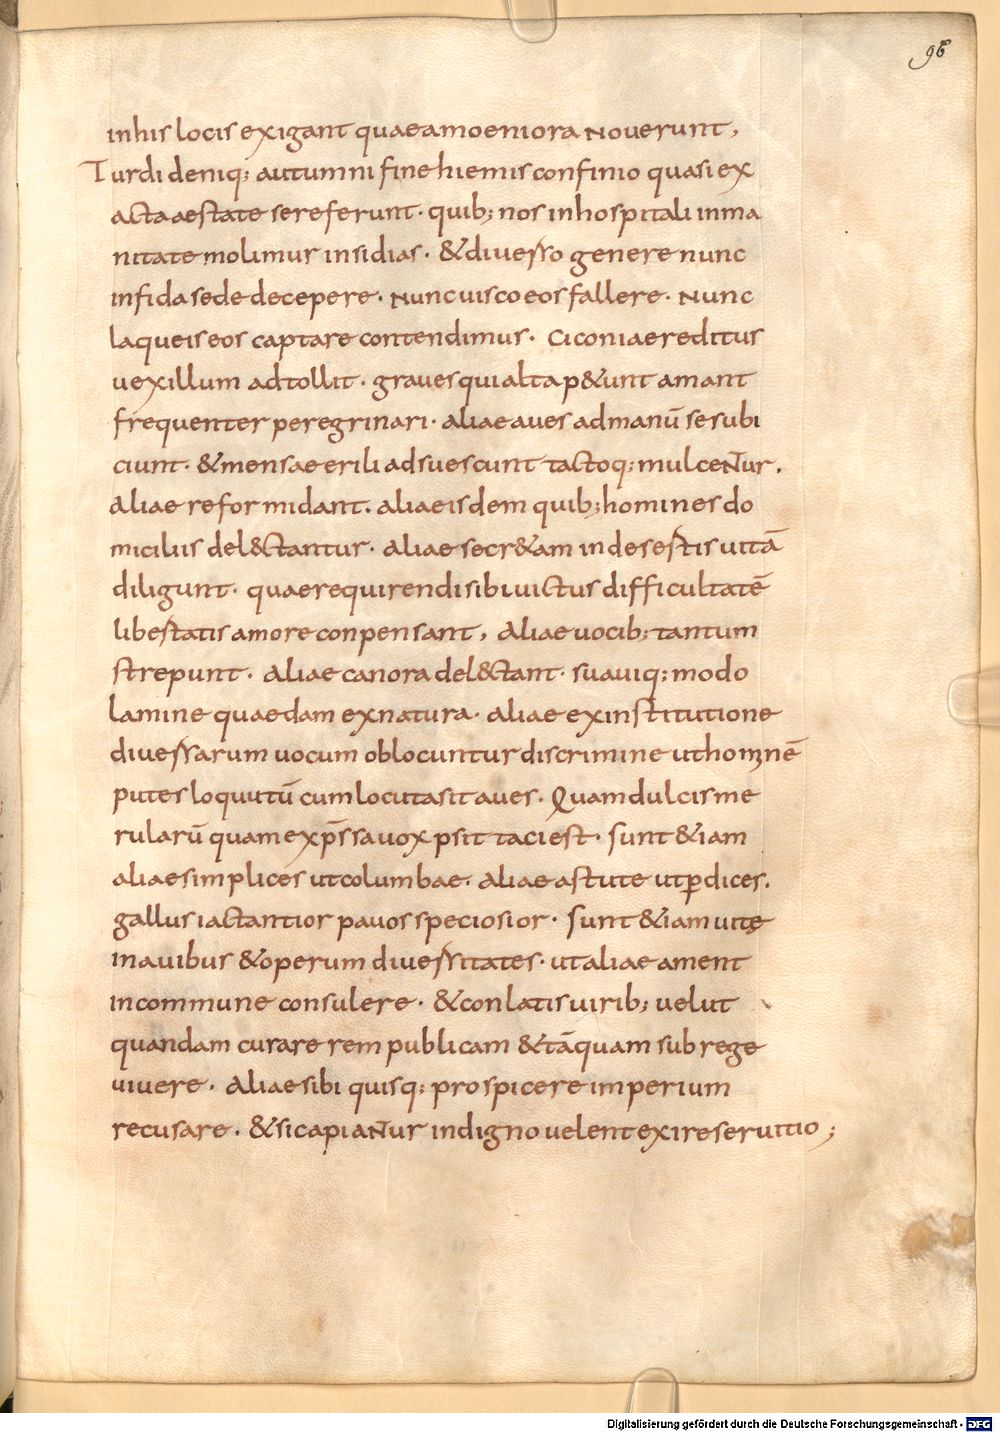 96
inhis locis exigant quae amoeniora noverunt,
Turdi deniq; autumni fine hiemis confinio quasi ex
acta aestate sereferunt · quib; nos inhospitali inma
nitate molimur insidias · &diuerso genere nunc
infida sede decepere · nunc uisco eos fallere · nunc
laqueis eos captare contendimus · ciconiae reditus
uexillum adtollit · graues qui alta p&unt amant
frequenter peregrinari · aliae aues ad manū se subi
ciunt · &mensae erili adsuescunt tactoq; mulcentur.
aliae reformidant. aliae isdem quib; homines do
miciliis del&tantur · aliae secr&am in desertis uitā
diligunt · quae requirendi sibi uictus difficultatē
libertatis amore conpensant, aliae uocib; tantum
strepunt · aliae canora del&tant · suauiq; modo
lamine quaedam ex natura · aliae ex institutione
diuersarum uocum oblocuntur discrimine ut hominē
putes loquutū cum locuta sit aues. Quam dulcis me
rularū quam exp̄ssa uox psit taci est · sunt &iam
aliae simplices ut columbae. aliae astute ut pdices.
gallus iactantior pauos speciosior · sunt &iam uitę
in auibus &operum diuersitates · ut aliae ament
in commune consulere · &conlatis uirib; uelut
quandam curare rem publicam &tāquam sub rege
uiuere. aliae sibi quisq; prospicere imperium
recusare. &si capiantur indigno uelent exire seruitio;
Digitalisierung gefördert durch die Deutsche Forschungsgemeinschaft - DFG